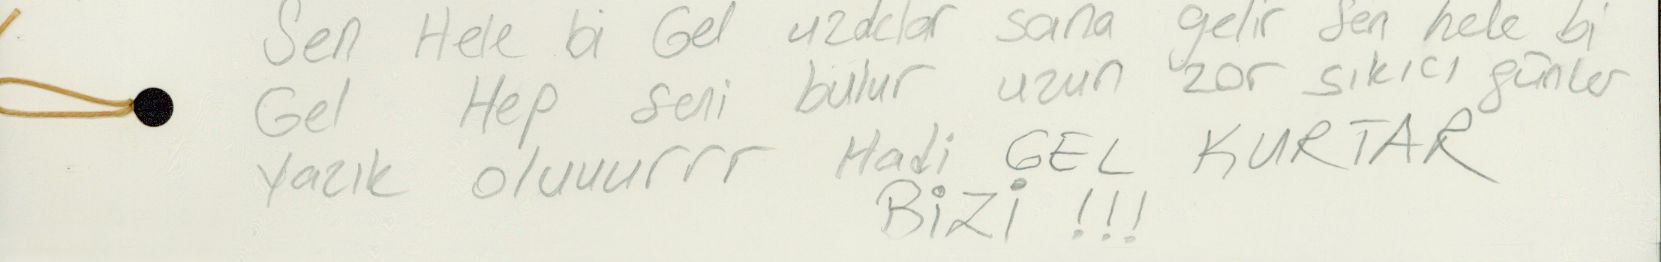 Sen Hele bi Gel uzdclar sana gelir Sen hele bi
Gel Hep seni bulur uzun zor sıkıcı günler
Yazık oluuurrr Hadi GEL KURTAR
BiZi !!!